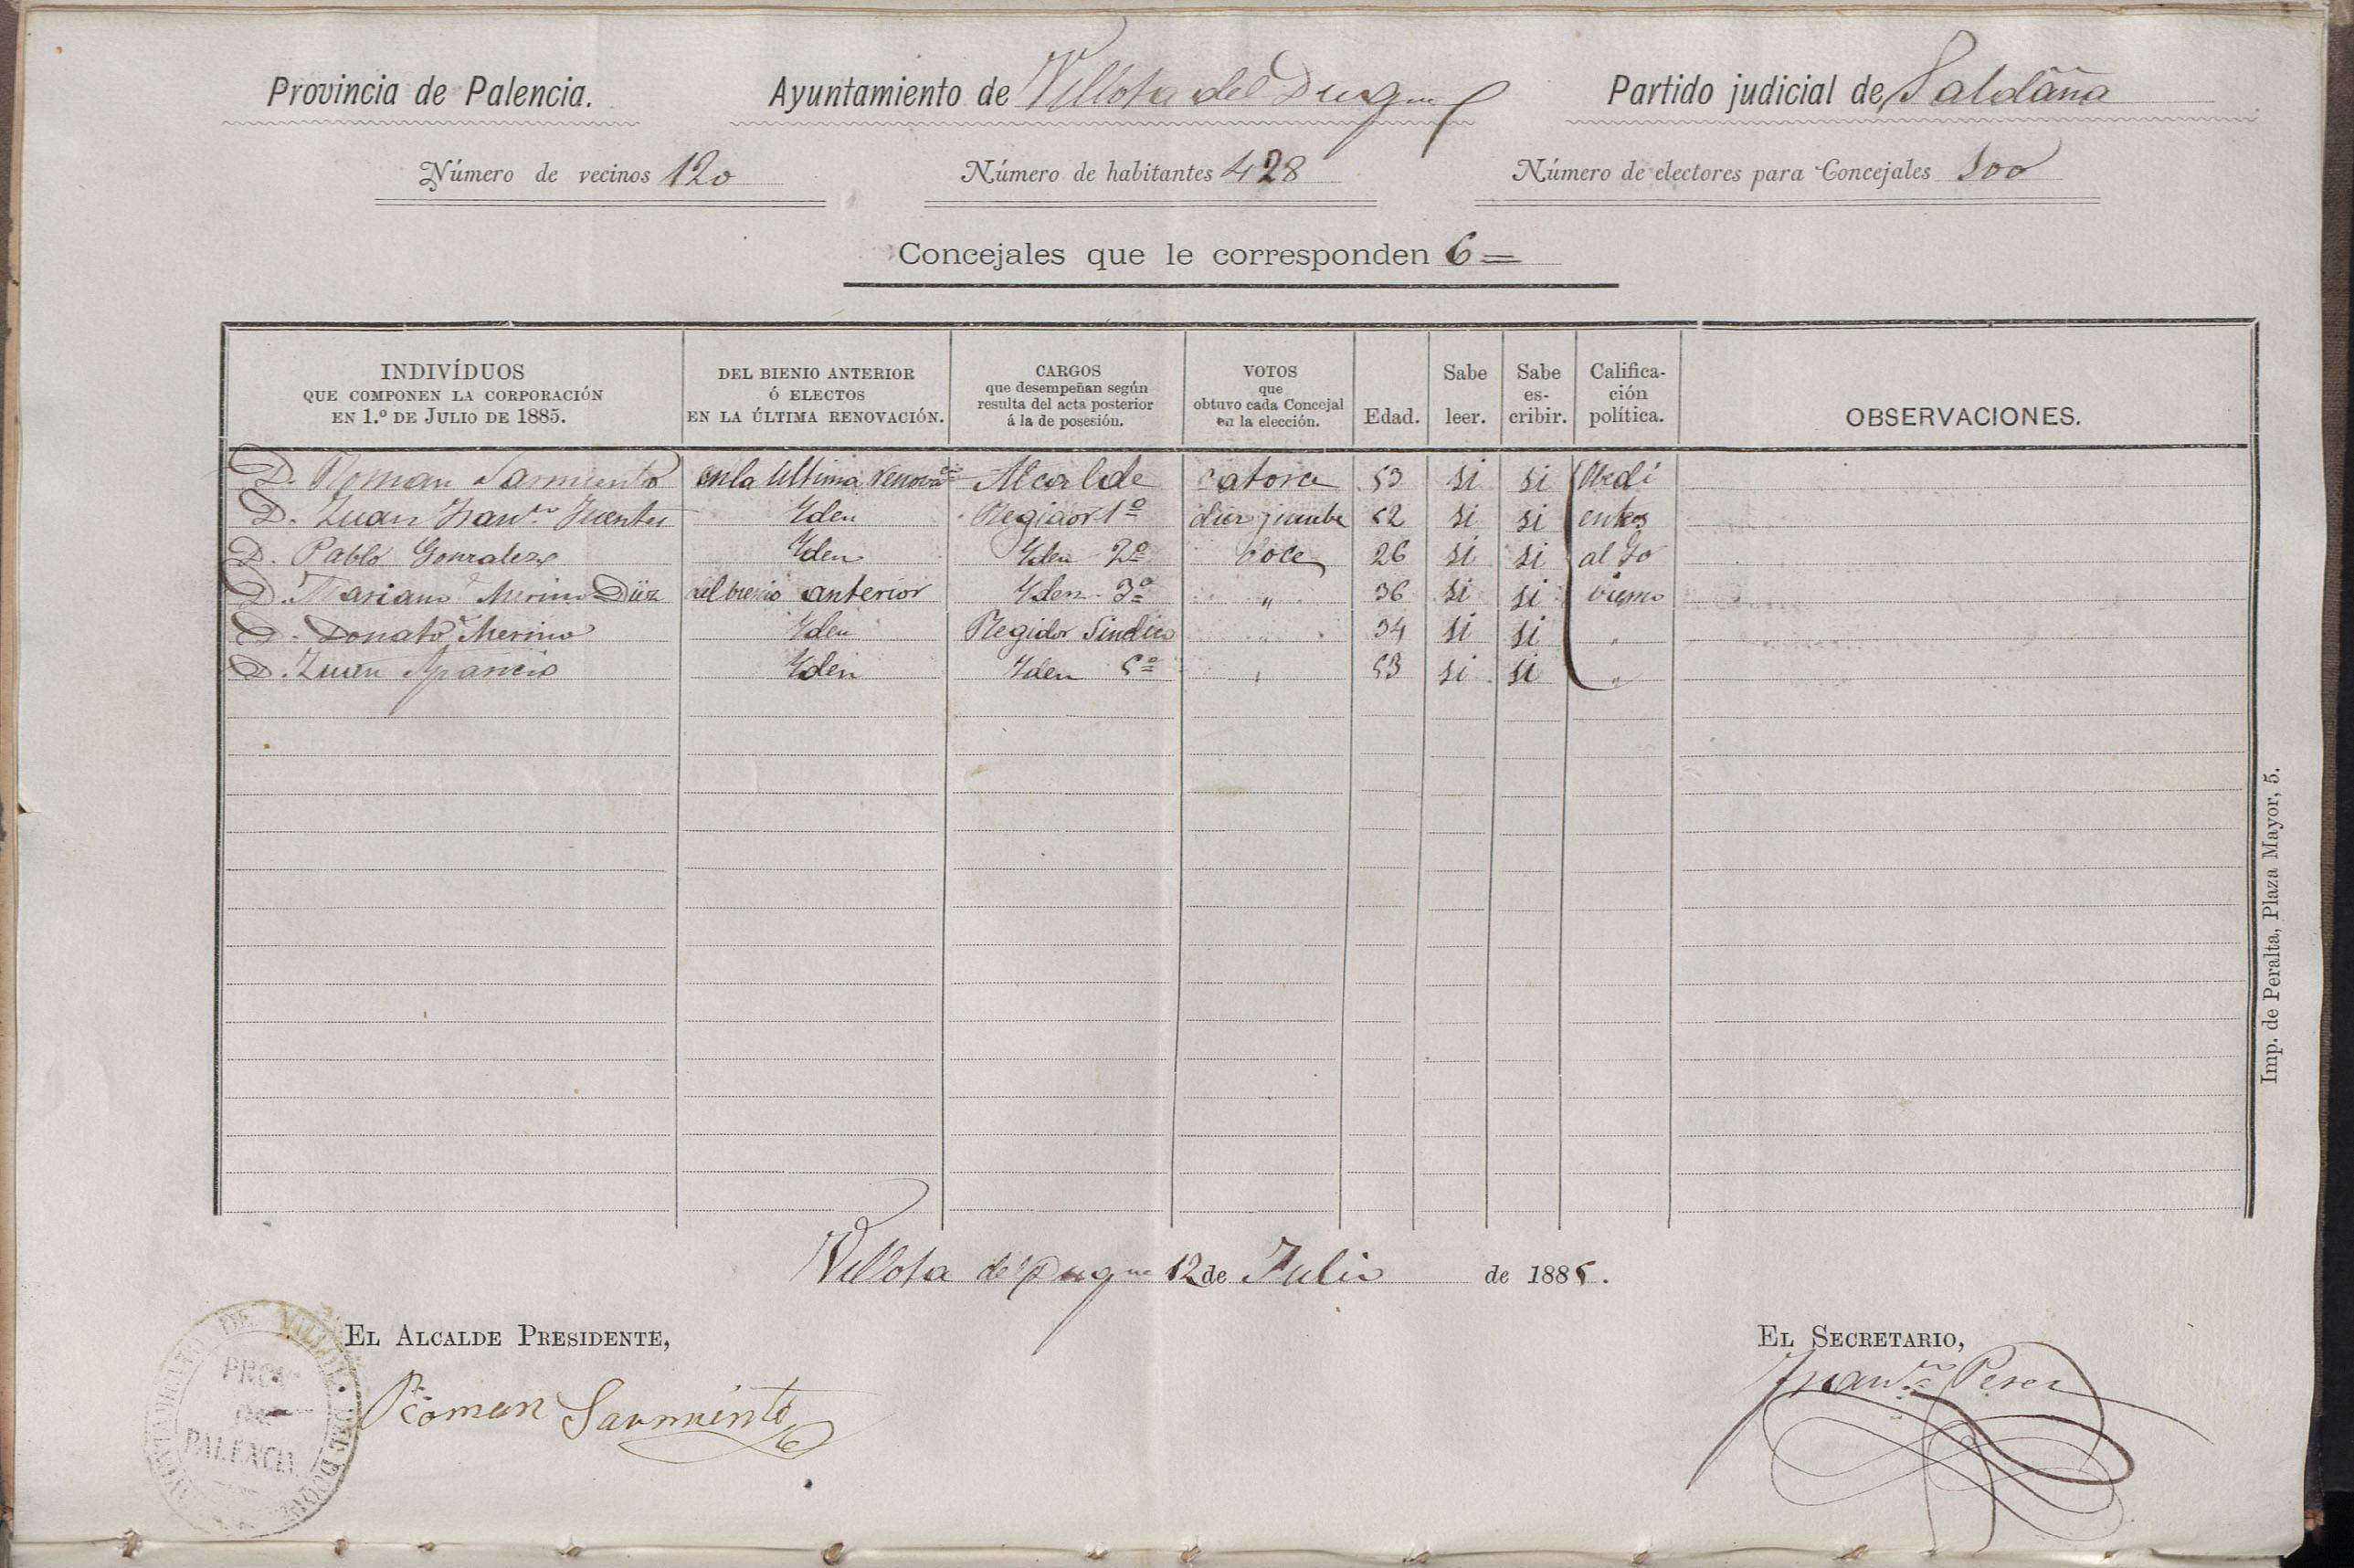 Provincia de Palencia. Ayuntamiento de Villota del Duque Partido judicial de Saldaña
Número de vecinos 120 Número de habitantes 428 Número de electores para Concejales 100
Concejales que le corresponden 6=
INDIVÍDUOS QUE COMPONEN LA CORPORACIÓN EN 1.º DE JULIO DE 1885. DEL BIENIO ANTERIOR Ó ELECTOS EN LA ÚLTIMA RENOVACIÓN. CARGOS que desempeñan según resulta del acta posterior á la de posesión. VOTOS que obtuvo cada Concejal en la elección. Edad. Sabe leer. Sabe es-cribir. Califica-ción política. OBSERVACIONES.
D. Roman Sarmiento en la Ultima renovaon Alcalde catorce 53 si si Obedi
D. Juan Franco Fuentes Yden Regidor 1º diez y nuebe 52 si si entes
D. Pablo Gonzalez Yden Yden 2º Doce 26 si si al Go
D. Mariano Merino Diiez del bienio anterior Yden 3º " 36 si si vierno
D. Donato Merino Yden Regidor Sindico " 34 si si "
D. Juan Aparicio Yden Yden 5º " 53 si si "
Villota del Duque 12 de Julio de 1885.
EL ALCALDE PRESIDENTE, EL SECRETARIO,
Roman Sarmiento Franco Perez
AYUNTAMIENTO DE VILLOTA DEL DUQUE
PROVA
DE
PALENCIA
Imp. de Peralta, Plaza Mayor, 5.